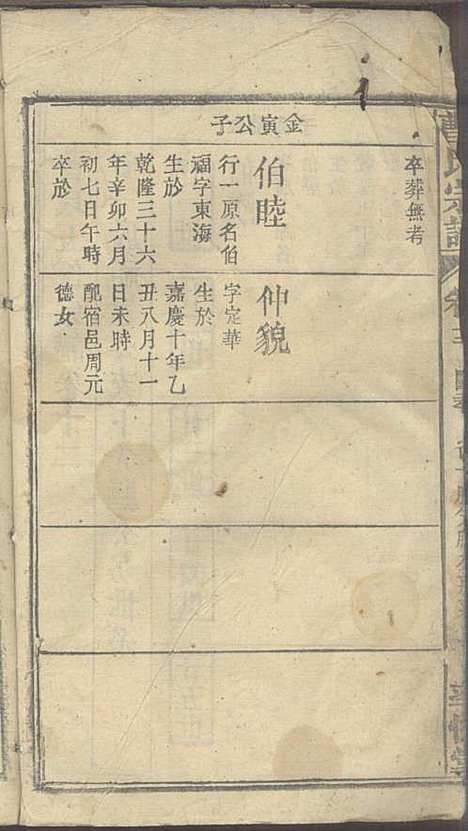 卒葬無考
金寅公子
伯睦
行一原名伯
福字東海
生於
乾隆三十六
年辛卯六月
初七日午時
卒於
仲貌
字定華
生於
嘉慶十年乙
丑八月十一
日未時
配宿邑周元
德女
氏宗譜